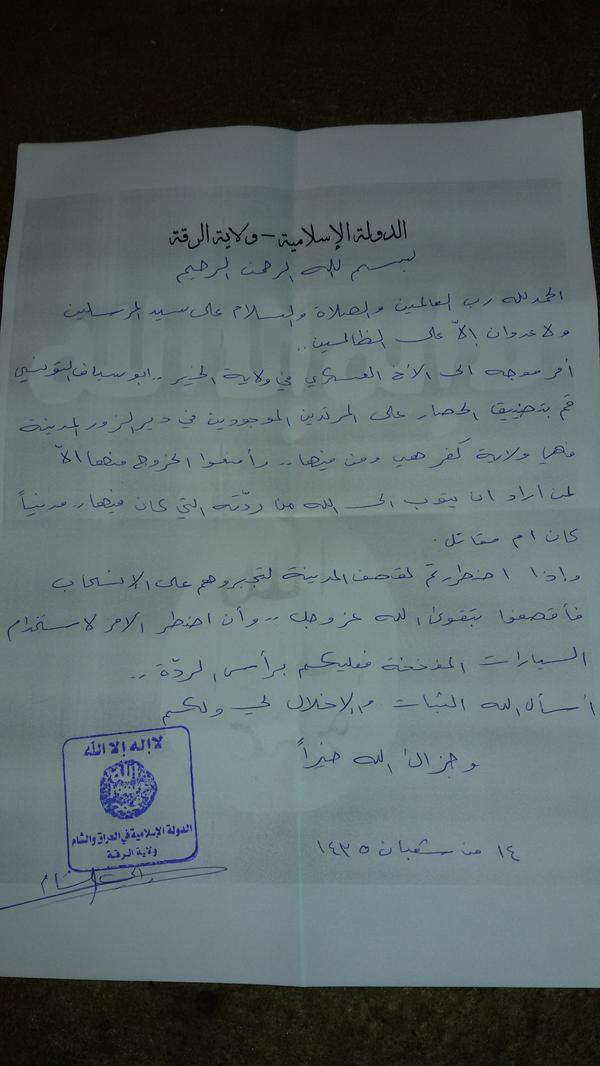 الدولة الإسلامية - ولاية الرقة
بسم الله الرحمن الرحيم
الحمد لله رب العالمين والصلاة والسلام على سيد المرسلين
ولا عدوان الاّ على الظالمين..
أمر موجه الى الأخ العسكري في ولاية الخير.. ابو سياف التونسي
قم بتضييق الحصار على المرتدين الموجودين في ديرالزور المدينة
فهي ولاية كفر هي ومن فيها.. وأمنعوا الخروج منها الاّ
لمن اراد ان يتوب الى الله من ردّته التي كان فيها.. مدنياً
كان ام مقاتل.
واذا اضطررتم لقصف المدينة لتجبروهم على الإنسحاب
فأقصفوا بتقوى الله عز وجل.. وأن اضطر الامر لاستخدام
السيارات المفخخة فعليكم برأس الردّة..
أسأل الله الثبات والإخلاص لي ولكم
وجزاك الله خيراً
لا إله إلا الله
الدولة الإسلامية في العراق والشام
ولاية الرقة
١٤ من شعبان ١٤٣٥